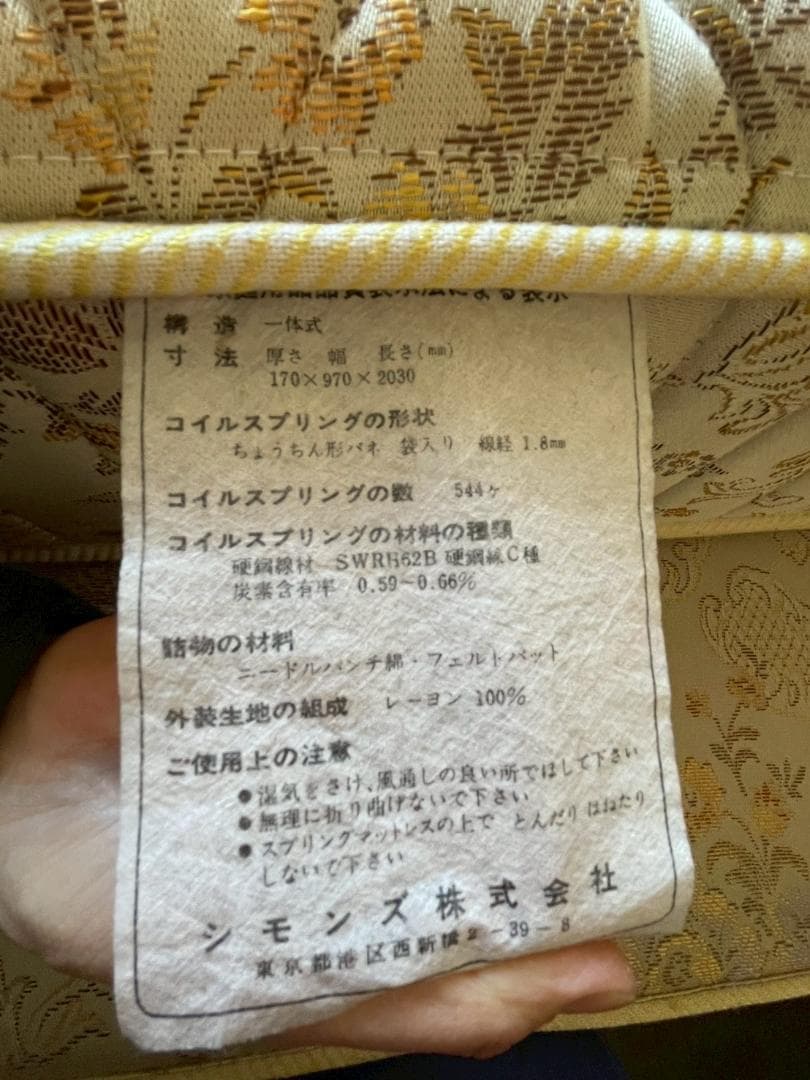 家庭用品品質表示法による表示
構造 一体式
寸法 厚さ 幅 長さ(mm)
170×970×2030
コイルスプリングの形状
ちょうちん形バネ 袋入り 線径 1.8mm
コイルスプリングの数 544ケ
コイルスプリングの材料の種類
硬鋼線材 SWRH62B 硬鋼線C種
炭素含有率 0.59-0.66%
詰物の材料
ニードルパンチ綿・フェルトパット
外装生地の組成 レーヨン 100%
ご使用上の注意
●湿気をさけ、風通しの良い所でほして下さい
●無理に折り曲げないで下さい
●スプリングマットレスの上で とんだり はねたり
しないで下さい
シモンズ株式会社
東京都港区西新橋2-39-8